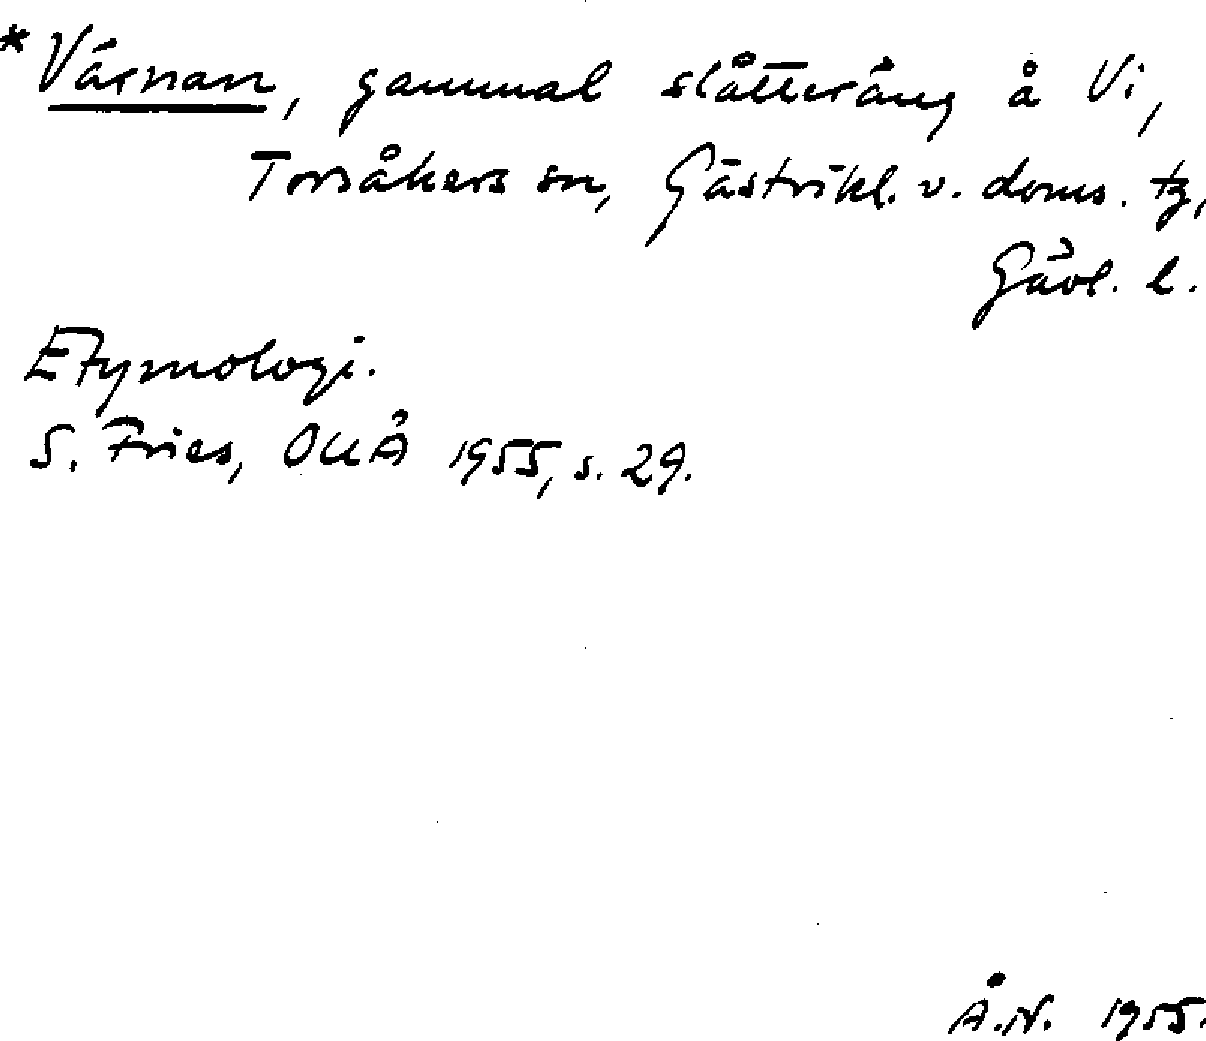 *Värnan, gammal slåtteräng å Vi,
Torsåkers sn, Gästrikl. v. doms. tg,
Gävl. l.
Etymologi.
S. Fries, OUÅ 1955, s. 29.
Å.N. 1955.